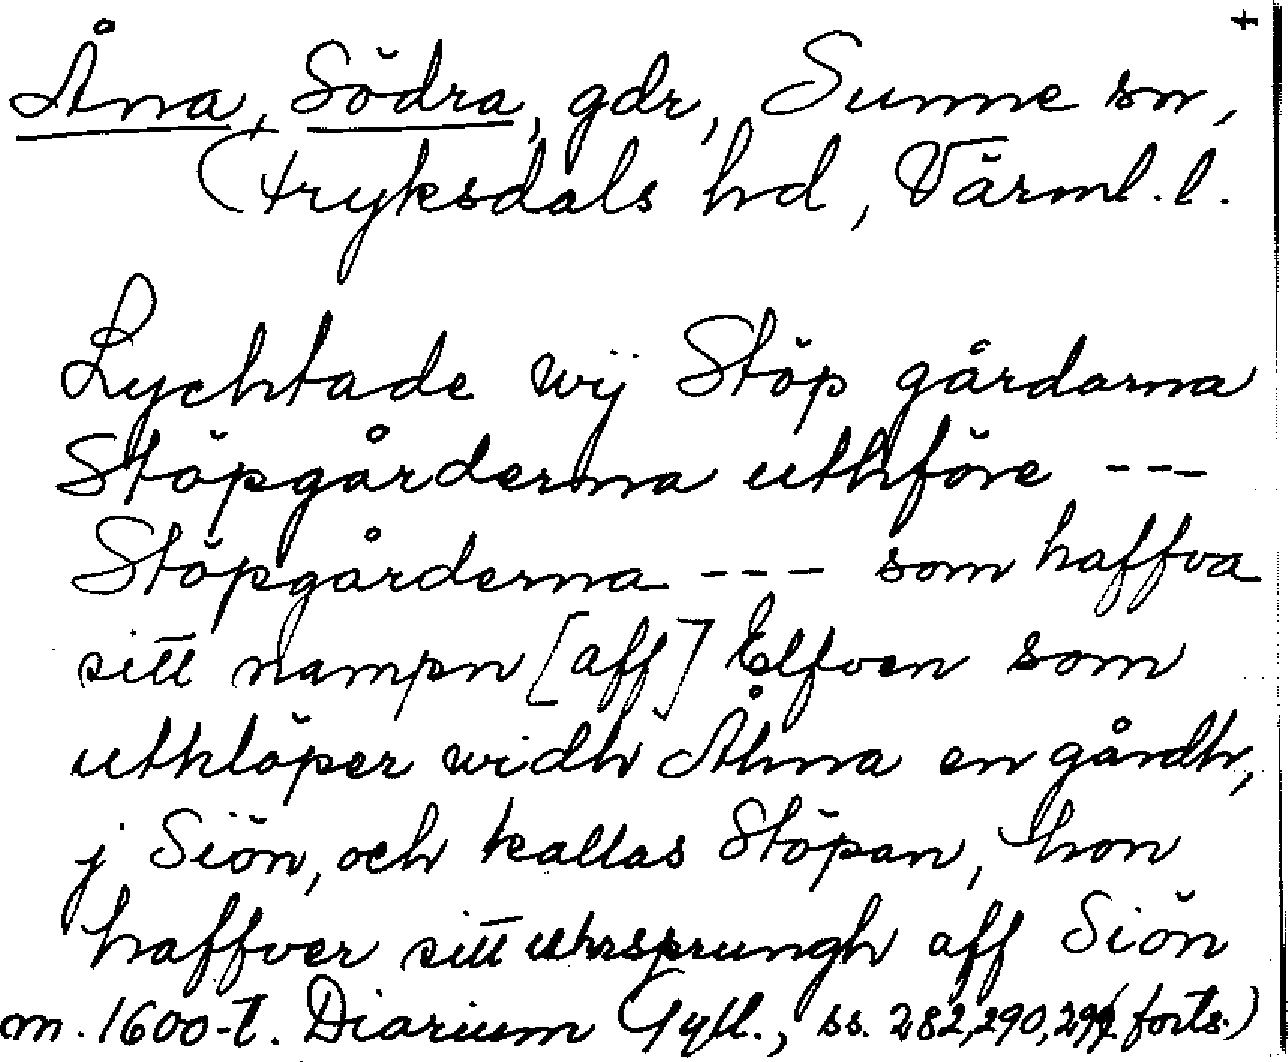 +
Åna, Södra, gdr, Sunne sn,
Fryksdals hd, Värml. l.
Lychtade wij Stöp gårdarna
Stöpgårderna uthföre ---
Stöpgårderna --- som haffva
sitt nampn [aff] Elfven som
uthlöper widh Åhna en gårdh,
j Siön, och kallas Stöpan, hon
haffver sitt uhrsprungh aff Siön
m. 1600-t. Diarium Gyll., ss. 282, 290, (forts.)